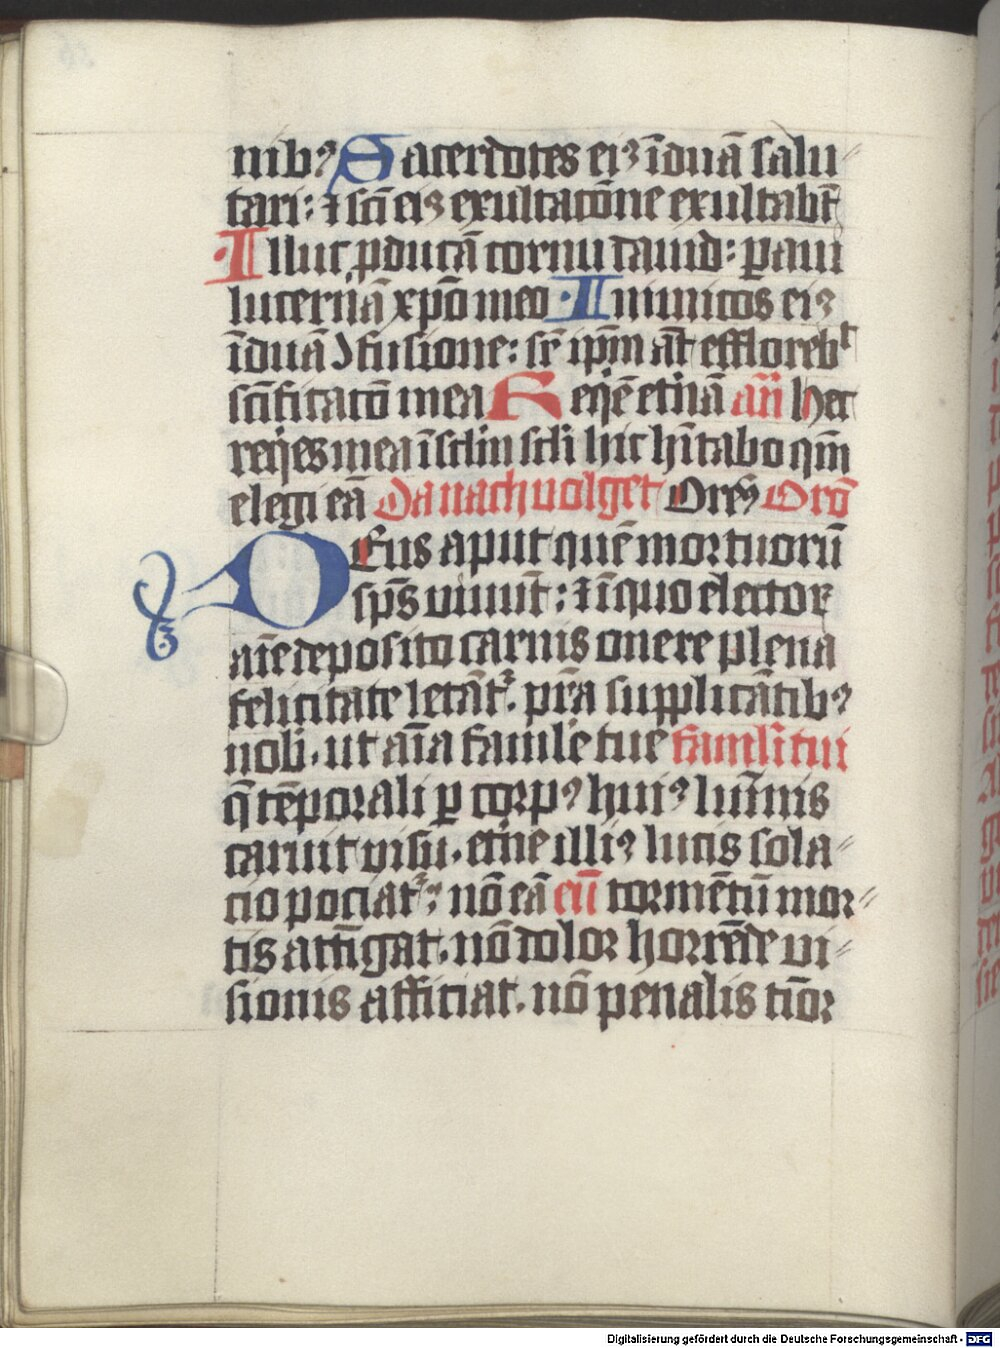 nibꝰ Sacerdotes eiꝰ īduā salu⸗
tari: ⁊ scī eiꝰ exultacōne exultabt̄
Illuc ꝓducā cornu dauid: ꝑaui
lucernā xp̄o meo Inimicos eiꝰ
īduā ↄfusione: sr̄ ip̄m āt effloreb̉t
sc̄ificacō mea Reqiē et̉nā an̄ Hec
reqies mea ī sc̄lm sc̄li hic hītabo qm̄
elegi eā Da nach volget Oremꝰ Orō
DEus aput quē mortuorū
sp̄s viuūt: ⁊ ī quo electoꝝ
aīe deposito carnis onere plena
felicitate letāt̉. pr̄a supplicātibꝰ
nobˀ. ut aīa famule tue famuli tui
q̄ tēporali ꝑ corpꝰ huiꝰ lum̄inis
caruit visu. et̉ne illiꝰ lucis sola⸗
cio pociat̉: nō eā eū tormētū mor⸗
tis attīgat. nō dolor horrēde vi⸗
sionis afficiat. nō penalis tīor
Digitalisierung gefördert durch die Deutsche Forschungsgemeinschaft - DFG